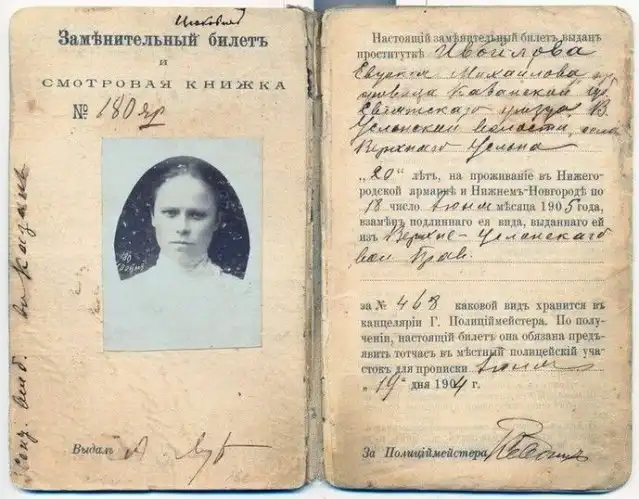 Замѣнительный билетъ
и
СМОТРОВАЯ КНИЖКА
№ 180 яр
Выдалъ
Настоящій замѣнительный билетъ выданъ
проституткѣ Ивойлова
Евдокія Михайлова
Казанской
Свіяжскаго уѣзда, В.
Услонской волости, села
Верхняго Услона
„20" лѣтъ, на проживаніе въ Нижего-
родской армаркѣ и Нижнемъ-Новгородѣ по
18 число іюня мѣсяца 1905 года,
взамѣнъ подлиннаго ея вида, выданнаго ей
изъ Верхне-Услонскаго
вол Прав.
за № 468 каковой видъ хранится въ
канцеляріи Г. Полиціймейстера. По полу-
ченіи, настоящій билетъ она обязана предъ-
явить тотчасъ въ мѣстный полицейскій уча-
стокъ для прописки іюня
„19" дня 1904 г.
За Полиціймейстера
въ Казань